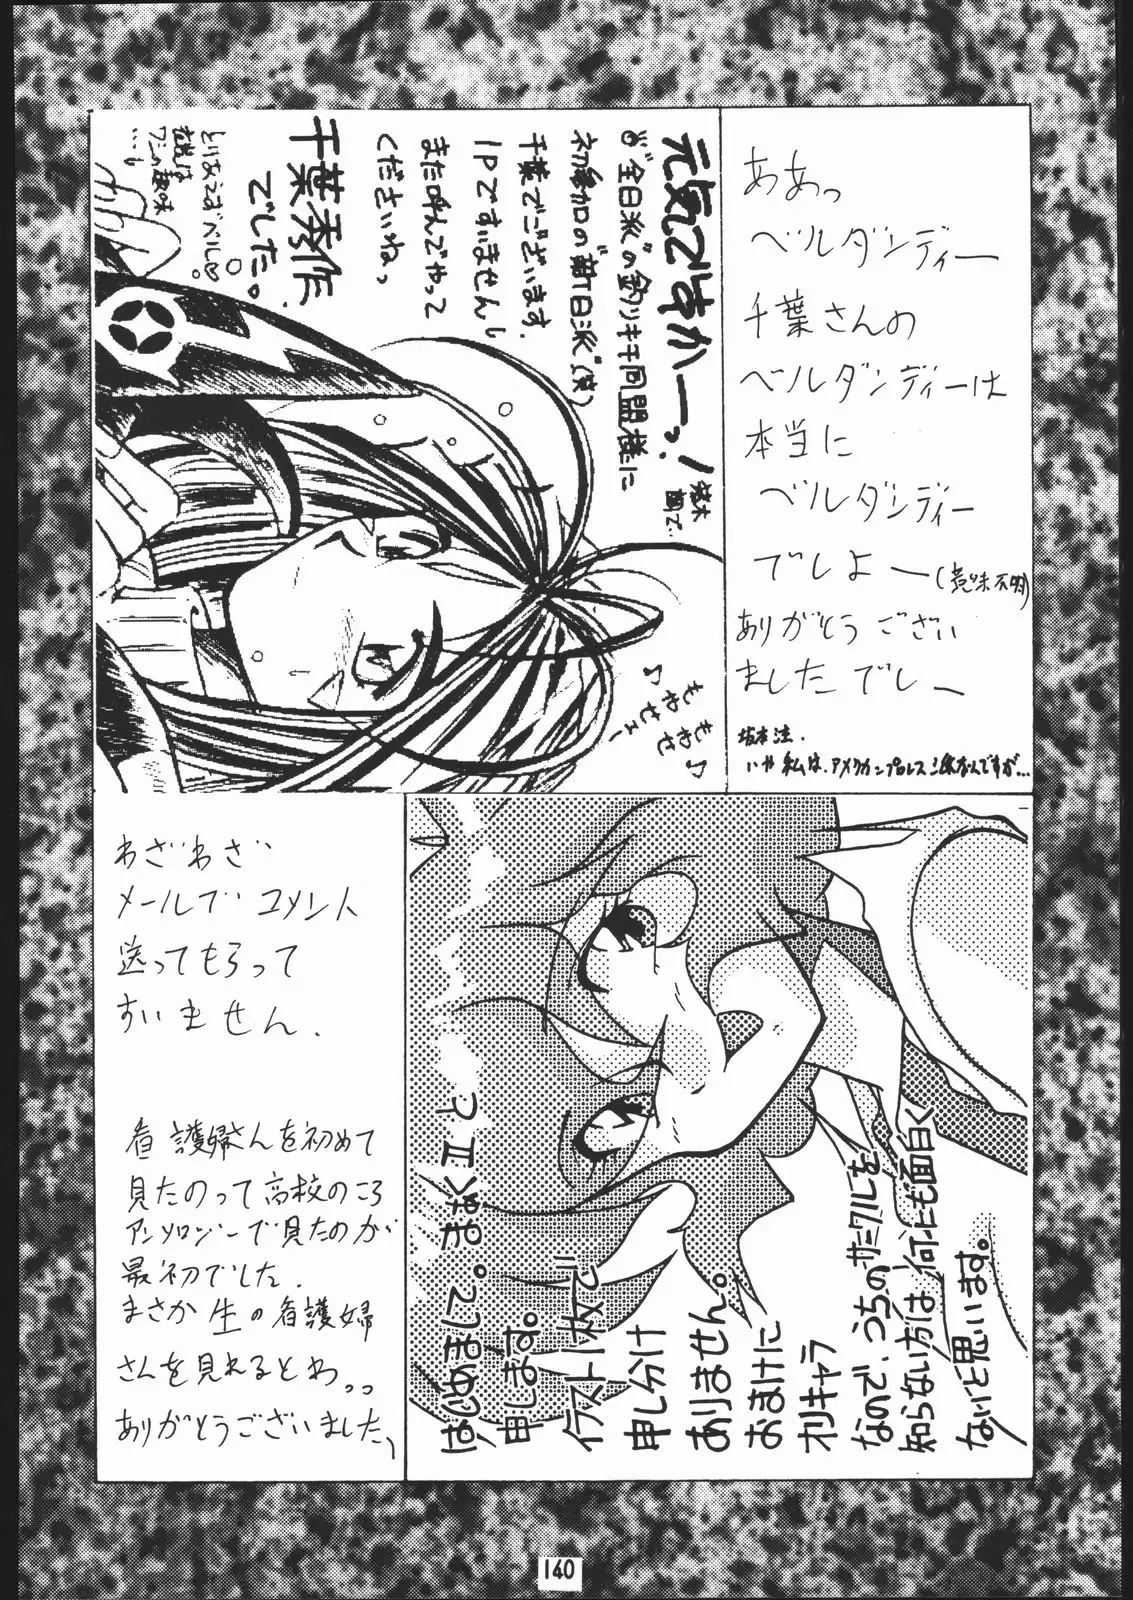 ああっ
ベルダンディー
千葉さんの
ベルダンディーは
本当に
ベルダンディー
でしよー(意味不明)
ありがとうござい
ましたでしー
坂本注.
いや私は、アメリカンプロレス派なんですが…
元気ですかーっ!
"全日派"の釣りキチ同盟様に
初参加の"新日派"(笑)
千葉でございます.
1Pですいませんし
また呼んでやって
くださいねっ
千葉秀作
でした。
とりあえずベル
…
♪もやせもやせェー♪
はじめまして。まゆくエレと
申します。
イラスト一枚で
申し分け
ありません。
おまけに
オリキャラ
なので、うちのサークルを
知らない方は何にも面白く
ないと思います。
わざわざ
メールでコメント
送ってもらって
すいません.
看護婦さんを初めて
見たのって高校のころ
アンソロジーで見たのが
最初でした.
まさか生の看護婦
さんを見れるとわっっ
ありがとうございました、
140